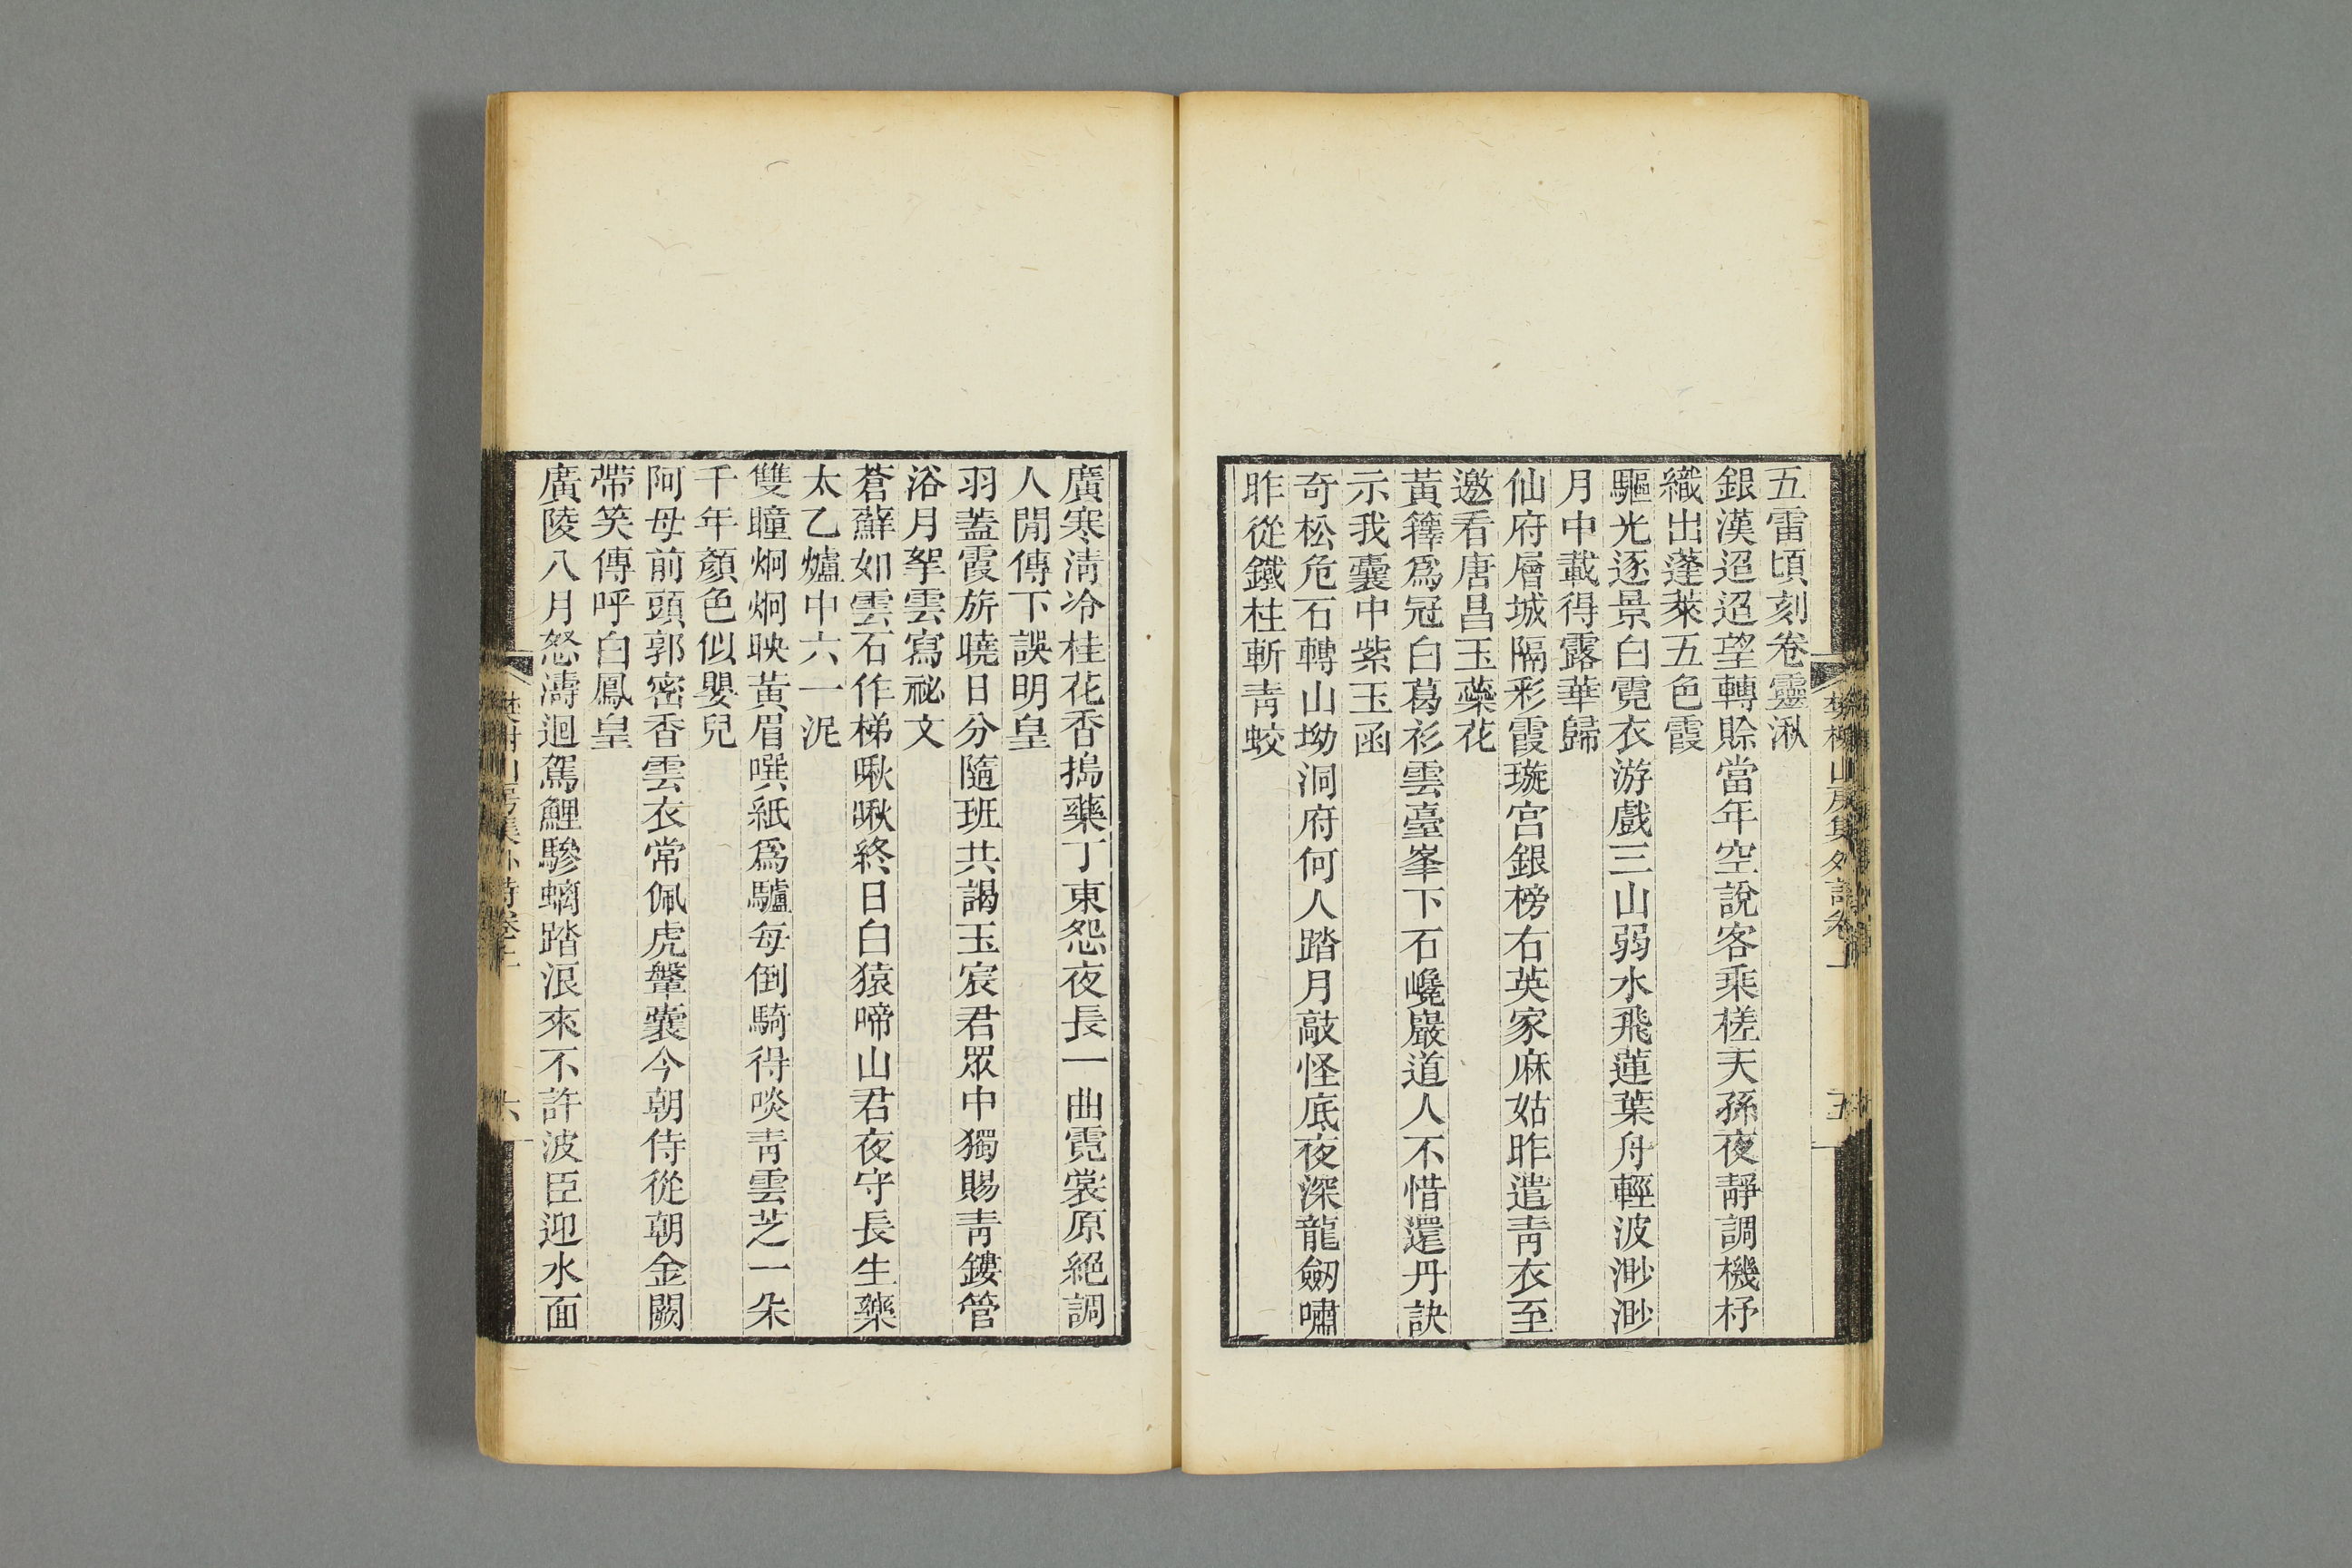 五雷頃刻卷靈湫
銀漢迢迢望轉賒當年空說客乘槎天孫夜靜調機杼
織出蓬萊五色霞
驅光逐景白霓衣游戲三山弱水飛蓮葉舟輕波渺渺
月中載得露華歸
仙府層城隔彩霞璇宮銀榜右英家麻姑昨遣靑衣至
邀看唐昌玉蘂花
黃籜爲冠白葛衫雲臺峯下石巉巖道人不惜還丹訣
示我囊中紫玉函
奇松危石轉山坳洞府何人踏月敲怪底夜深龍劒嘯
昨從鐵柱斬靑蛟
廣寒淸冷桂花香搗藥丁東怨夜長一曲霓裳原絕調
人閒傳下誤明皇
羽蓋霞旂曉日分隨班共謁玉宸君眾中獨賜靑鏤管
浴月挐雲寫祕文
蒼蘚如雲石作梯啾啾終日白猿啼山君夜守長生藥
太乙爐中六一泥
雙瞳炯炯映黃眉噀紙爲驢每倒騎得啖靑雲芝一朵
千年顏色似嬰兒
阿母前頭郭密香雲衣常佩虎鞶囊今朝侍從朝金闕
帶笑傳呼白鳳皇
廣陵八月怒濤迴駕鯉驂螭踏浪來不許波臣迎水面
樊榭山房集外詩卷
六